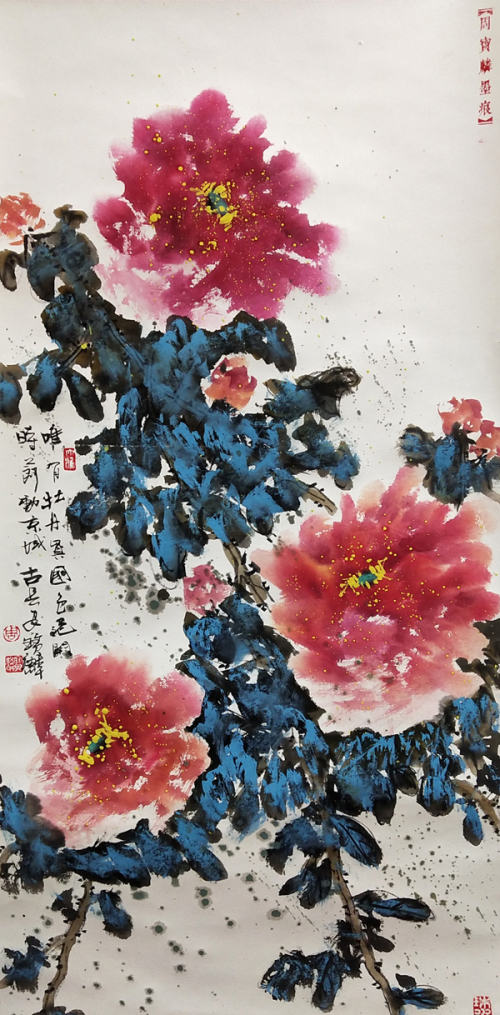 【周寶麟墨痕】
唯有牡丹真國色花開
時節動京城 古吳周寶麟